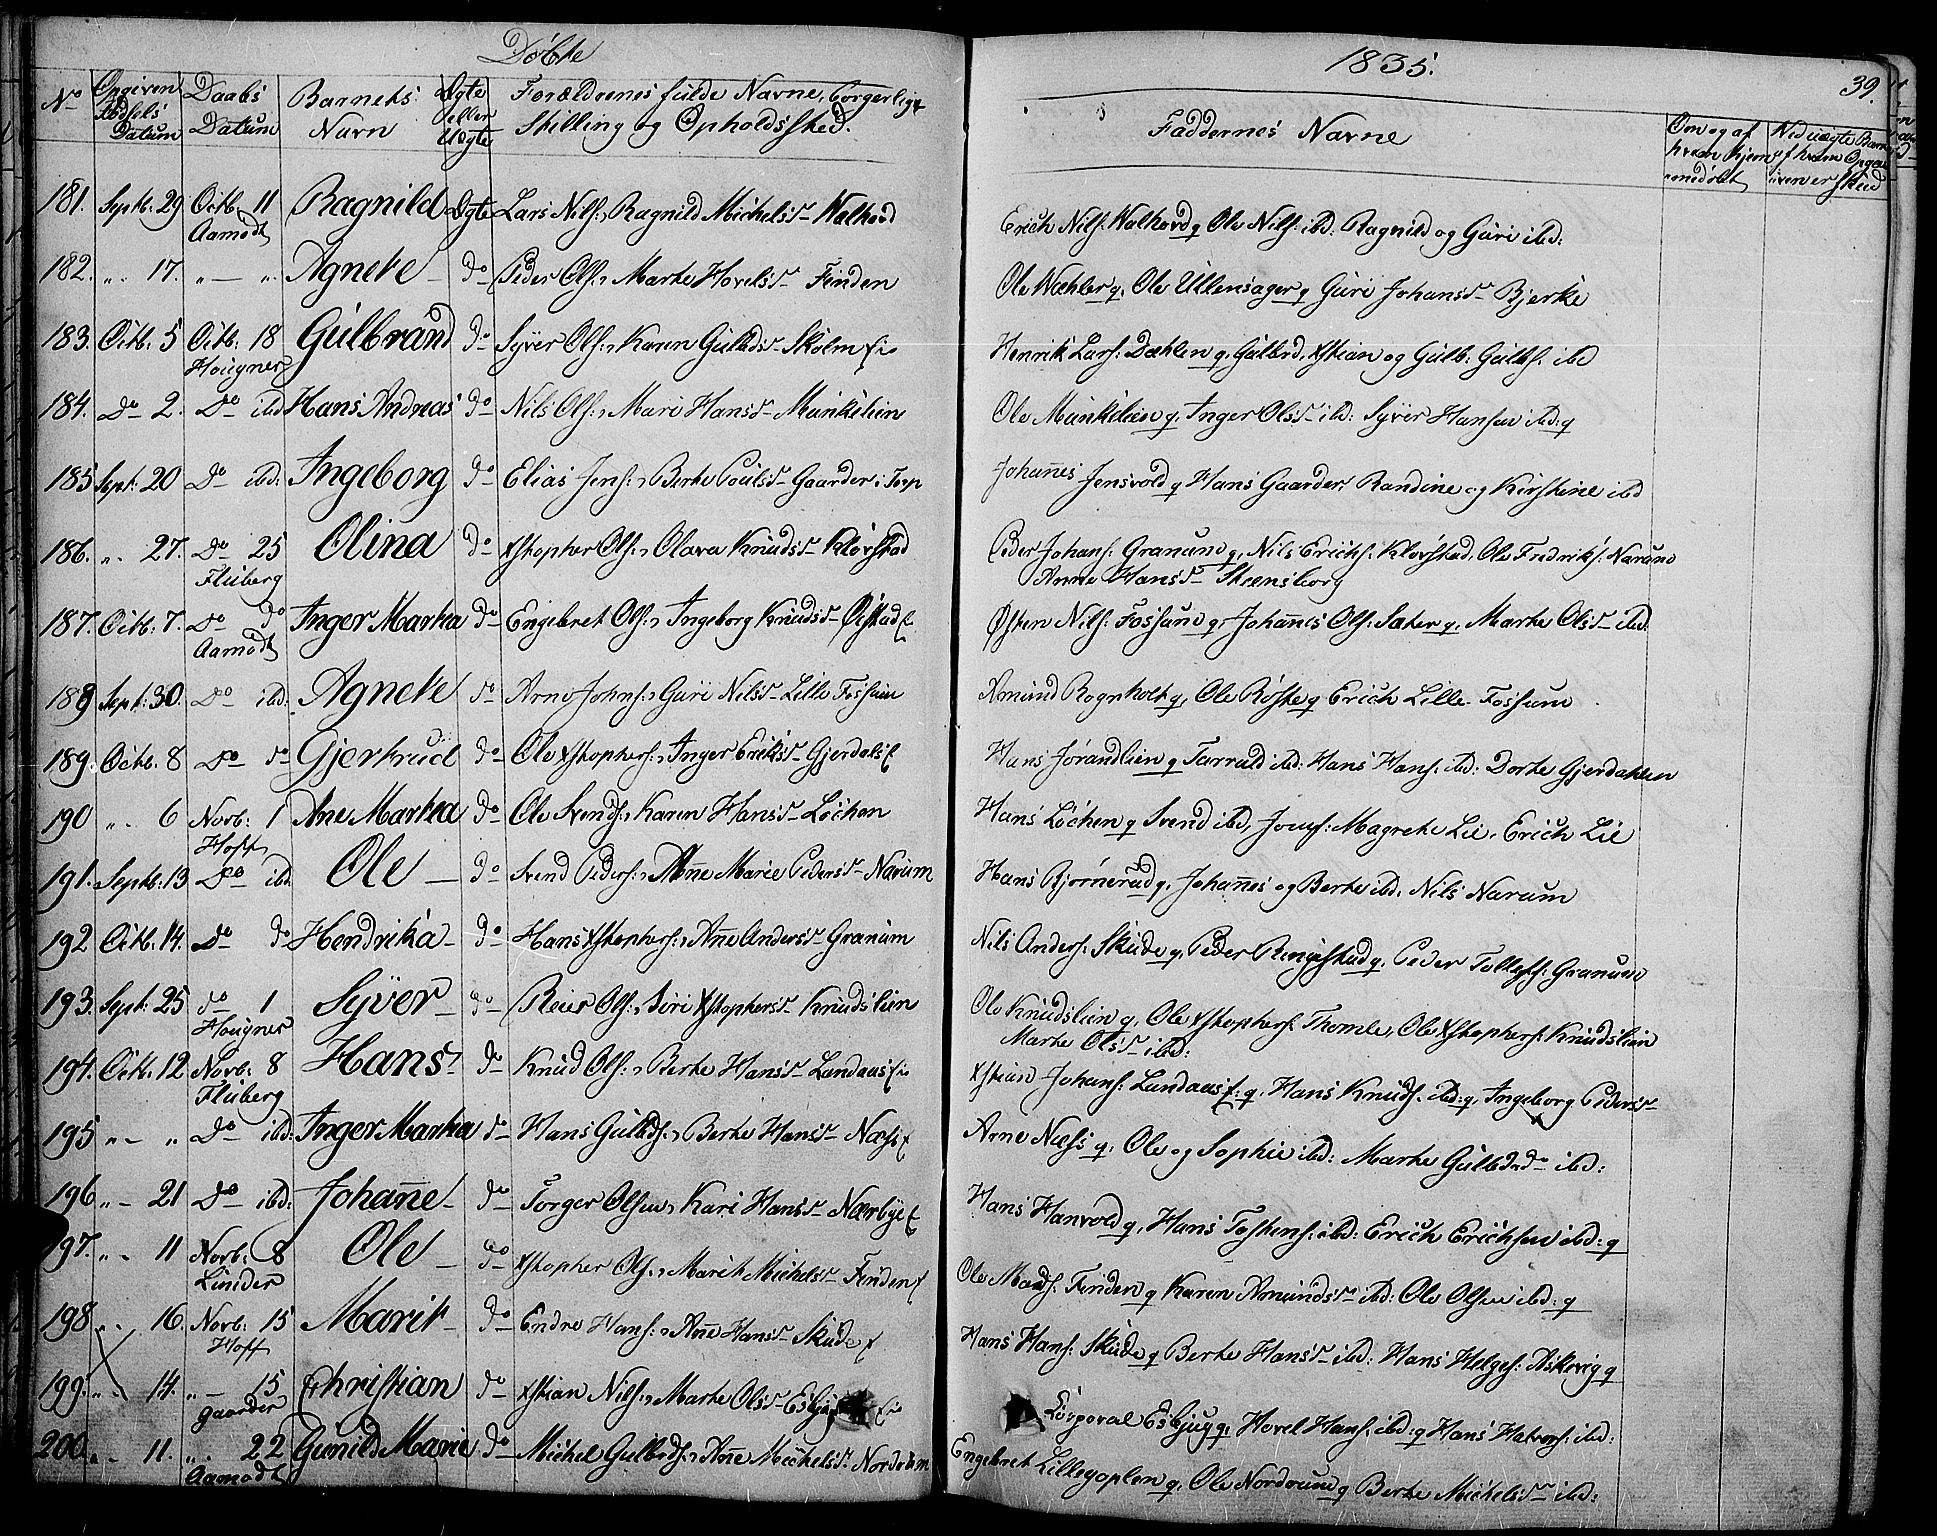 Døbte
1835.
39.
No Opgiven Fødsels Datum Daabs Datum Barnets Navn Ægte eller Uægte Forældrenes fulde Navne, borgerlige Stilling og Opholdssted.
Faddernes Navne
Om og af hvem hjemmedøbt
181. Septb: 29 Octb. 11 Aamodt Ragnild Ægte Lars Nils: , Ragnild Michelsd Walhovd
Erich Nils: Walhovd q Ole Nils: ibd: Ragnild og Guri ibd:
182. „. 17. „ — „. Agnete do Peder Ols: , Marte Hovelsd Finden
Ole Wæhler q, Ole Ullensager q Guri Johansd Bjerke
183. Octb. 5 Octb. 18 Hougner Gulbrand do Syver Ols: , Karen Gulbds Skolm
Henrik Lars: Dæhlen q, Gulbrd, Xstian og Gulb: Gulbs: ibd
184. Do 2. Do ibd Hans Andreas do Nils Ols: , Mari Hansd Munkelien
Ole Munkelien q, Inger Olsd ibd: Syver Hansen ibd: q
185 Sept: 20 Do ibd: Ingeborg do Elias Jens: , Berte Poulsd Gaarder i Torp
Johannes Jensvold q Hans Gaarder, Randine og Kirstine ibd
186. „. 27. Do 25 Fluberg Olina do Xstopher Ols: , Olava Knudsd Kløvstad
Peder Johans: Granund q, Nils Erichs: Kløvstad, Ole Fredriks: Narund
Anne Hansd Skrensborg
187. Octb: 7. Do do Aamodt Inger Marthea do Engebret Ols: , Ingeborg Knudsd Øistad
Østen Nils: Fossund q, Johannes Ols: Sæter q, Marte Olsd ibd:
188 Sept: 30. Do ibd: Agnete do Arne Johns: , Guri Nilsd Lille Fossum
Amund Rognholt q, Ole Røste q Erich Lille Fossum
189. Octb. 8 Do do Gjertrud do Ole Xstophers: , Inger Eriksd Gjerdals
Hans Jørandlien q Tarrald ibd: Hans Hans: ibd: Dorte Gjerdahlen
190 „. 6 Novb: 1 Hoff Ane Marthea do Ole Svends: , Karen Hansd Løchen
Hans Løchen q Svend ibd, Magrete Lie, Erich Lie
191. Septb: 13 Do ibd Ole do Svend Peders: , Anne Marie Pedersd Narum
Hans Bjørnerud q, Johannes og Berte ibd, Nils Narum
192 Octb. 14. Do do Hendrika do Hans Xstophers: , Anne Andersd Granum
Nils Anders: Skude q, Peder Ringstad q, Peder Tollefs: Granum
193. Sept: 25 do 1 Hougner Syver do Reier Ols: , Siri Xstophersd Knudslien
Ole Knudslien q, Ole Xstophers: Thomle, Ole Xstophers: Knudslien
Marte Olsd ibd:
194. Octb. 12 Novb: 8 Fluberg Hans do Knud Ols: , Berte Hansd Landaas
Xstian Johans: Landaas: q, Hans Knuds. ibd: q, Ingeborg Pedersd
195 „ — „ Do ibd: Inger Marthea do Hans Gulbds: , Berte Hansd Næss
Arne Næss q, Ole og Sophie ibd: Marte Gulbdsd ibd:
196 „ — 21 Do ibd: Johanne do Torger Olsen , Kari Hansd Nærbye
Hans Hanvold q, Hans Tostens: ibd: Erich Erichsen ibd: q
197. „. 11 Novb: 8 Linder Ole do Xstopher Ols: , Marit Michelsd Finden
Ole Mads: Finden q Karen Amundsd ibd: Ole Olsen ibd: q
198 „. 16. Novb: 15 Hoff Marit do Endre Hans: , Anne Hansd Skude
Hans Hans: Skude q Berte Hansd ibd: Hans Helges: Askvig q
199. „. 14. „ — 15 Gaarder Christian do Xstian Nils: , Marte Olsd
Corporal Esbjug q, Hovel Hans: ibd: q Hans Halvors: ibd:
200. „. 11. „. 22 Aamodt Gunild Marie do Michel Gulbrds: , Anne Michelsd Nordrum
Engebret Lillegoplen q, Ole Nordrund q Berte Michelsd ibd: